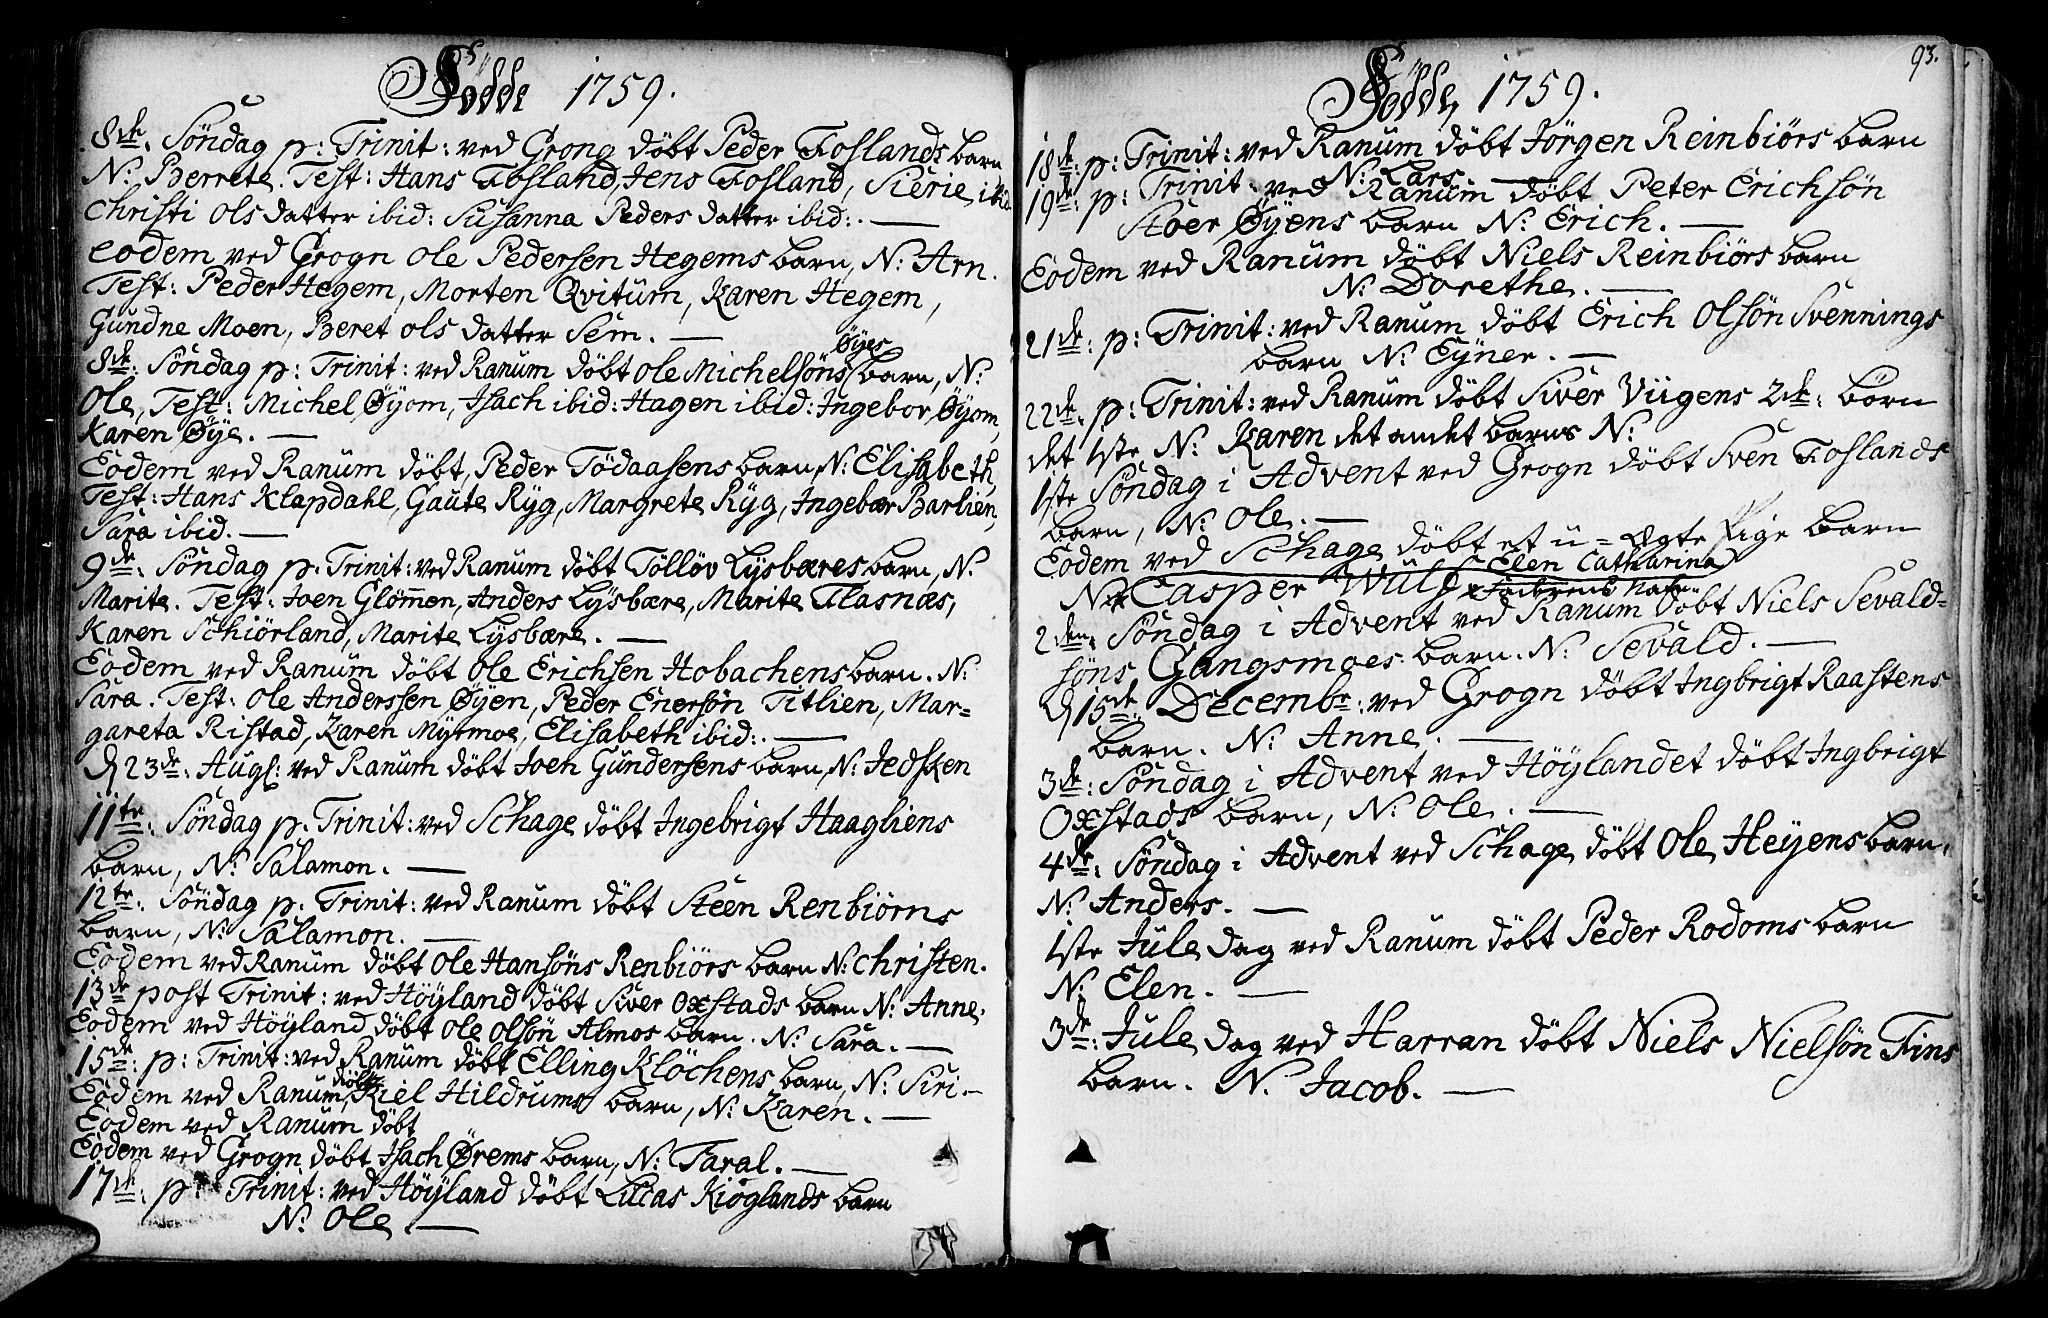 Fødde 1759.
8de: Søndag p: Trinit: ved Grong døbt Peder Foslands barn
N: Berrete. Test: Hans Fosland, Jens Fosland, Sierie ibid
Christi Ols datter ibid: Susanna Peders datter ibid: —
eodem ved Grogn Ole Pedersen Hegems barn, N: Arn.
Test: Peder Hegem, Morten Qvitum, Karen Hegem,
Gundne Moen, Beret Ols datter Sem. —
8de: Søndag p: Trinit: ved Ranum døbt Ole Michelsøns Øyes barn, N:
Ole, Test: Michel Øyom, Isach ibid: Hagen ibid: Ingebor Øyom,
Karen Øye. —
Eodem ved Ranum døbt, Peder Tødaasens barn, N: Elisabeth,
Test: Hans Klapdahl, Gaute Ryg, Margrete Ryg, Ingebor Barlien,
Sara ibid. —
9de: Søndag p: Trinit: ved Ranum døbt Tølløv Lysbæres barn, N:
Marite. Test: Joen Glømmen, Anders Lysbære, Marite Flasnæs,
Karen Schiørland, Marite Lysbære. —
Eodem ved Ranum døbt Ole Erichsen Hobachens barn. N:
Sara. Test: Ole Anderssen Øyen, Peder Enersøn Titlien, Mar=
gareta Ristad, Karen Mytmoe, Elisabeth ibid: —
D 23de: Augl: ved Ranum døbt Joen Gundersens barn, N: Jedsken
11te: Søndag p: Trinit: ved Schage døbt Ingebrigt Haagliens
barn, N: Salamon. —
12te: Søndag p: Trinit: ved Ranum døbt Steen Renbiørns
barn, N: Salamon. —
Eodem ved Ranum døbt Ole Hansøns Renbiørs barn N: Christen.
13de post Trinit: ved Høyland døbt Siver Oxstads barn N: Anne.
Eodem ved Høyland døbt Ole Olsøn Almos barn. N: Sara. —
15de: p: Trinit: ved Ranum døbt Elling Kløchens barn, N: Siri. —
Eodem ved Ranum, døbt Kiel Hildrums barn, N: Karen. —
Eodem ved Ranum døbt
Eodem ved Grogn døbt Isach Ørems barn, N: Taral. —
17de: p: Trinit: ved Høyland døbt Lucas Kiøglands barn
N: Ole. —
93.
Fødde, 1759.
18de: p: Trinit: ved Ranum døbt Jørgen Reinbiørs barn
N: Lars —
19de: p: Trinit: ved Ranum døbt Peter Erichsøn
Stoer Øyens barn N: Erich. —
Eodem ved Ranum døbt Niels Reinbiørs barn
N: Dorethe. —
21de: p: Trinit: ved Ranum døbt Erich Olsøn Svennings
barn N: Eyner. —
22de: p: Trinit: ved Ranum døbt Siver Viigens 2de: børn
det 1ste N: Karen det andet barns N:
1ste Søndag i Advent ved Grogn døbt Sven Foslands
barn, N: Ole. —
Eodem ved Schage døbt et u=ægte Pige barn
Elen Catharina
N: Casper Wulf
2den: Søndag i Advent ved Ranum døbt Niels Sevald=
søns Gangsmoes barn. N: Sevald. —
D 15de: Decembr: ved Grogn døbt Ingbrigt Raastens
barn. N: Anne. —
3de: Søndag i Advent ved Høylandet døbt Ingbrigt
Oxstads barn, N: Ole. —
4de: Søndag i Advent ved Schage døbt Ole Heyens barn,
N: Anders. —
1ste Jule dag ved Ranum døbt Peder Rodoms barn
N: Elen. —
3de: Jule dag ved Harran døbt Niels Nielsøn Fins
barn. N. Jacob. —